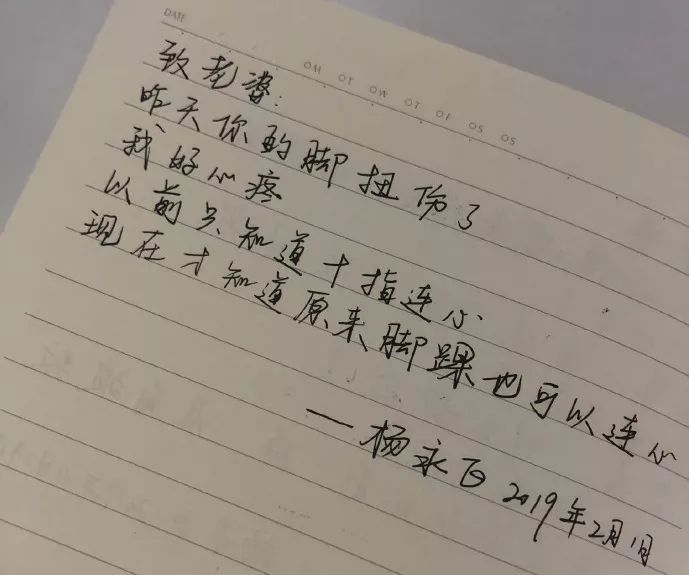 DATE
OM OT OW OT OF OS OS
致老婆:
昨天你的脚扭伤了
我好心疼
以前只知道十指连心
现在才知道原来脚踝也可以连心
—杨永 2019年2月1日